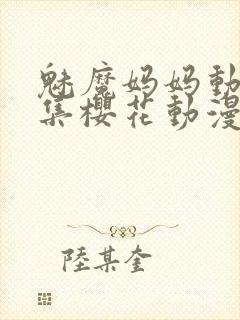 魅魔妈妈動
集櫻花動漫
陸某奎